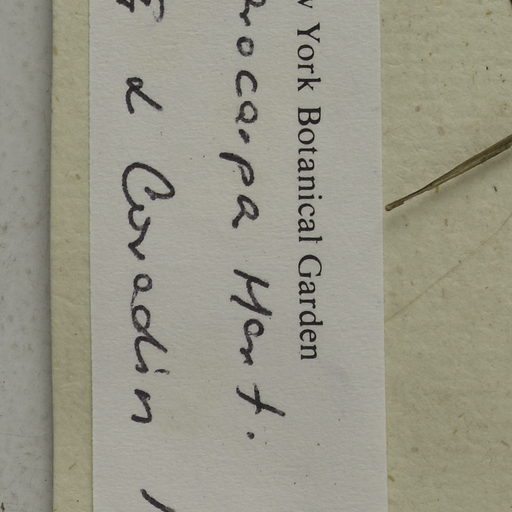 w York Botanical Garden
rocarpa Mart.
& Conradin